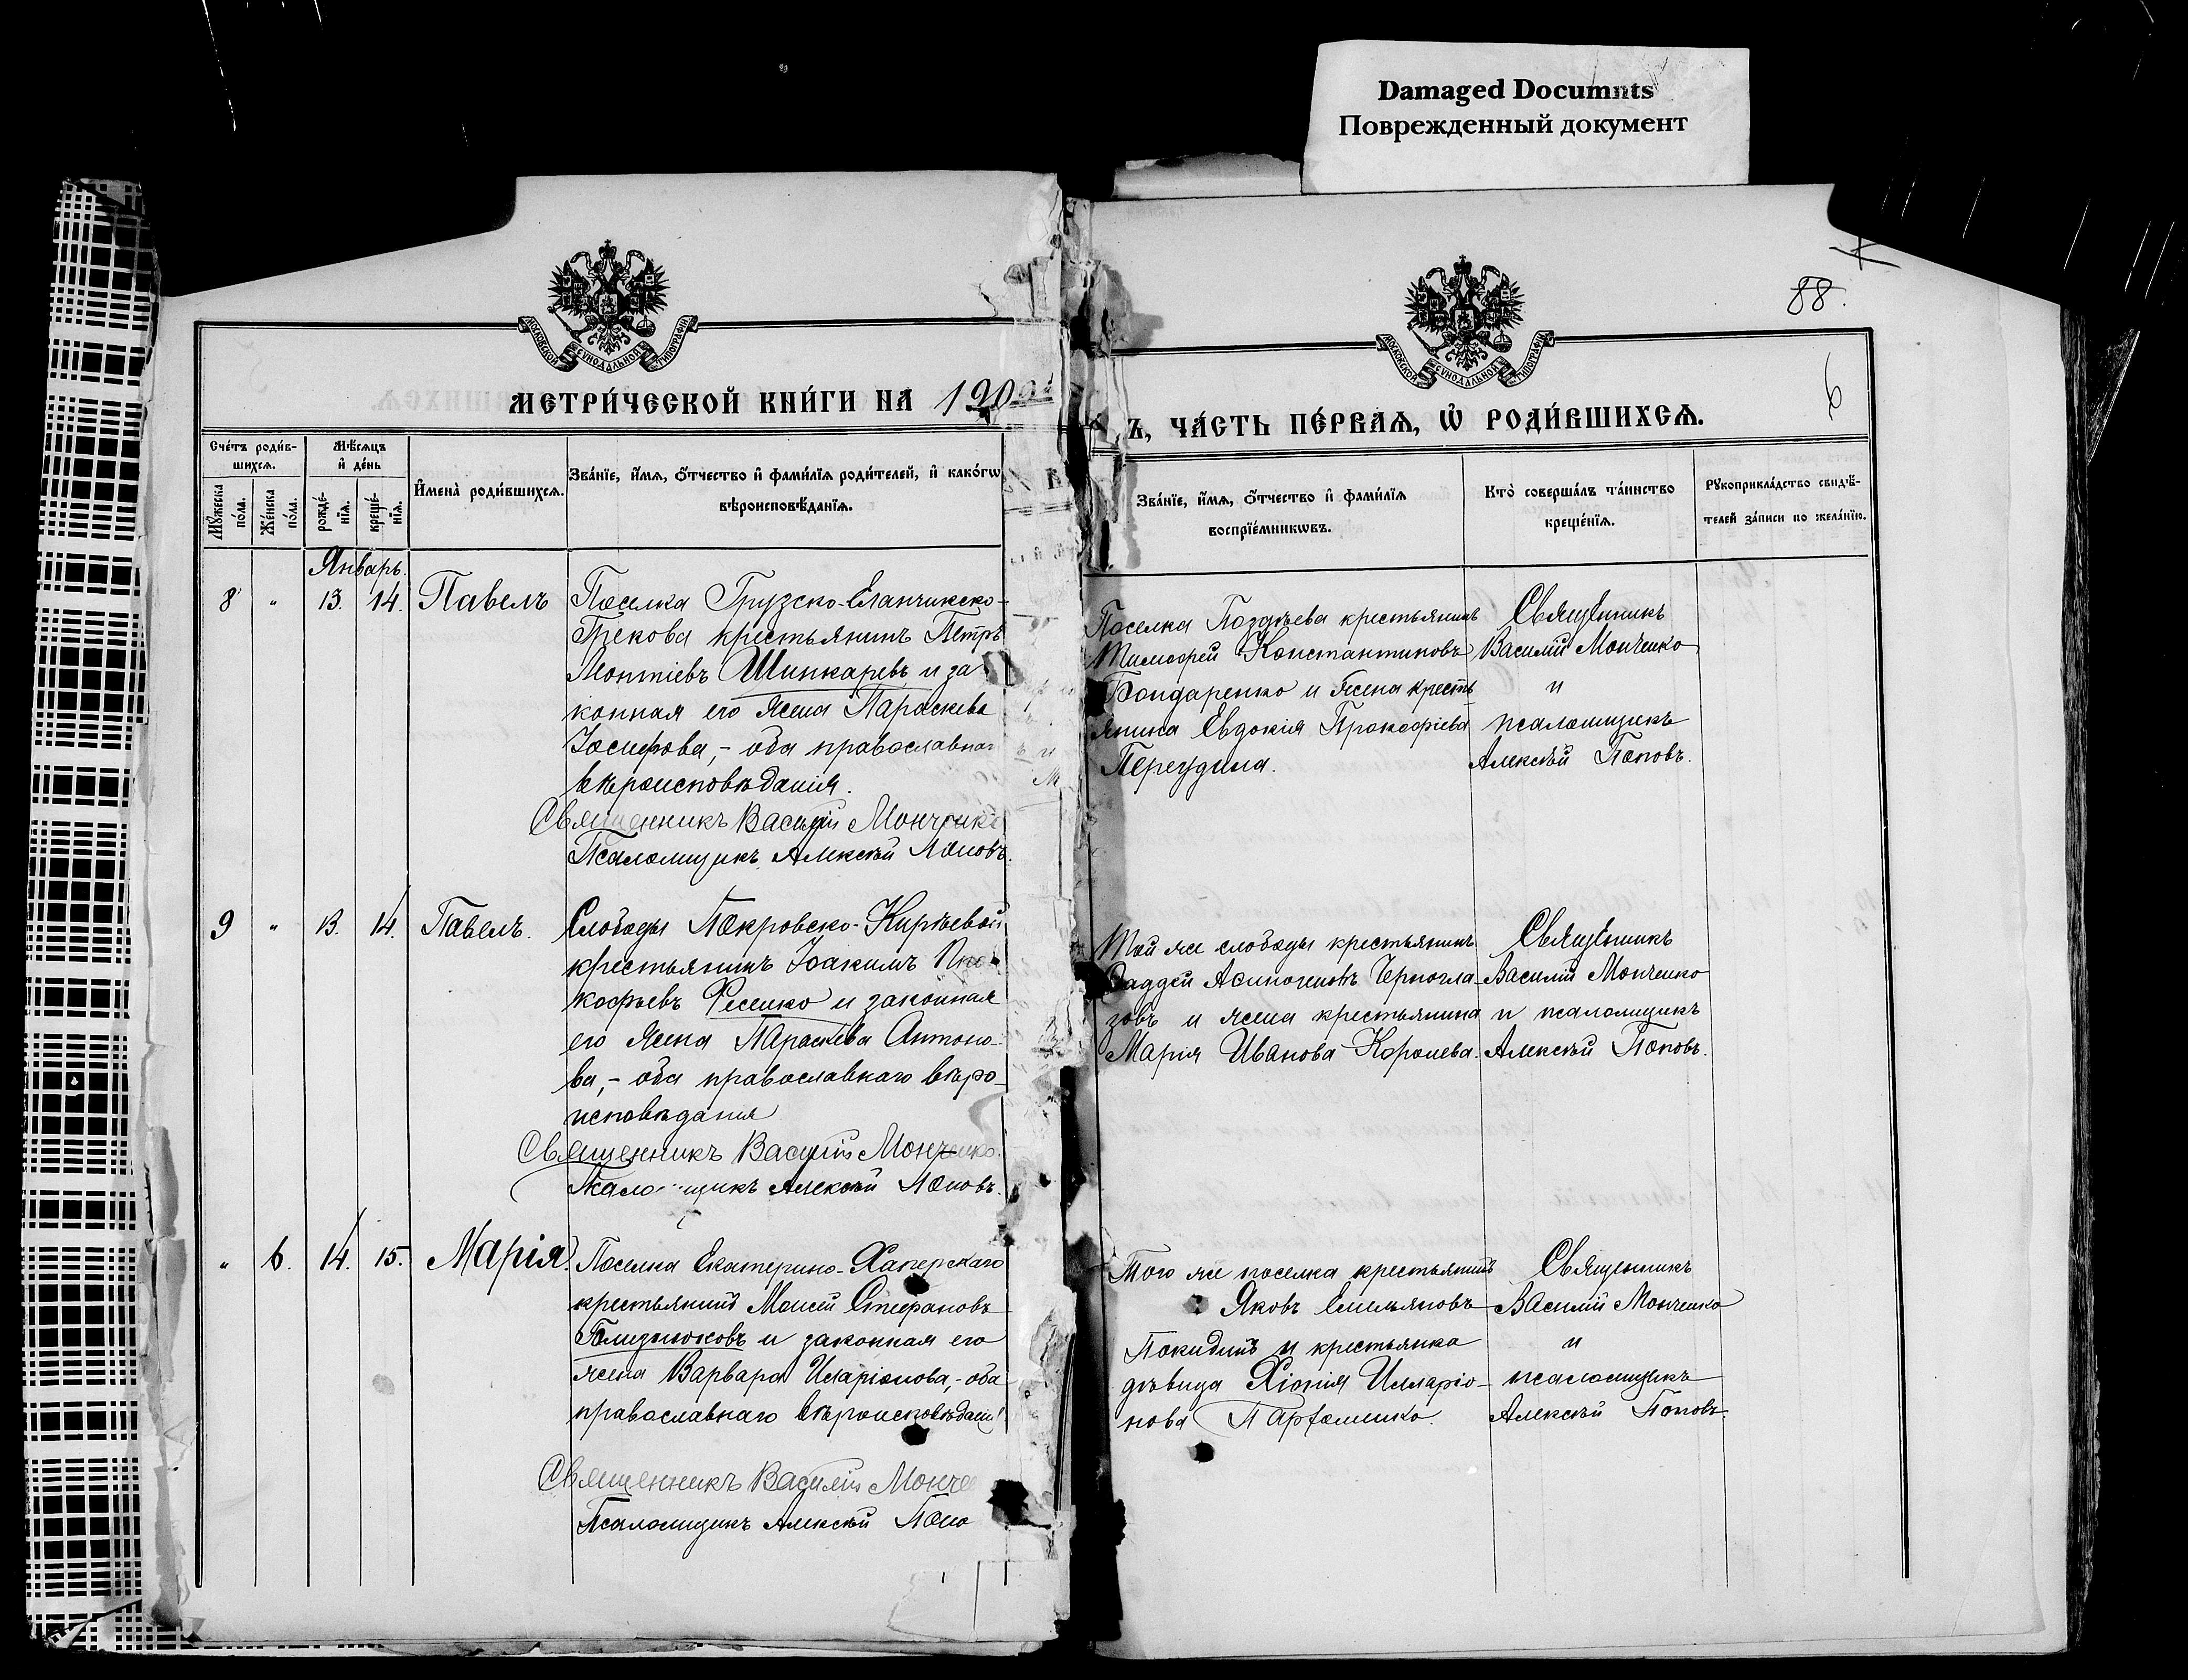 Damaged Documnts
Поврежденный документ
88.
6
МОСКОВСКОЙ СУНОДАЛЬНОЙ ТИПОГРАФІИ
МОСКОВСКОЙ СУНОДАЛЬНОЙ ТИПОГРАФІИ
МЕТРИ́ЧЕСКОЙ КНИ́ГИ НА 190
Ъ, ЧА́СТЬ ПЕ́РВАѦ, Ѽ РОДИ́ВШИХСѦ.
Сче́тъ роди́в-
шихсѧ.
Мꙋ́жеска по́ла.
Же́нска по́ла.
Мѣ́сѧцъ
и҆ де́нь
рожде́-
нїѧ.
креще́-
нїѧ.
И҆мена̀ роди́вшихсѧ.
Зва́нїе, и҆́мѧ, ѻ҆́тчество и҆ фами́лїѧ роди́телей, и҆ како́гѡ
вѣроисповѣ́данїѧ.
Зва́нїе, и҆́мѧ, ѻ҆́тчество и҆ фами́лїѧ
воспрїе́мникѡвъ.
Кто̀ соверша́лъ та́инство
креще́нїѧ.
Рꙋкоприкла́дство свидѣ́-
телей за́писи по жела́нїю.
Январь.
8 " 13. 14. Павелъ
Поселка Грузско-Еланчикско-
Грекова крестьянинъ Петръ
Леонтіевъ Шинкаревъ и за
конная его жена Параскева
Іосифова,- оба православнаг
вѣроисповѣданія.
Священникъ Василій Мончеко
Псаломщикъ Алексѣй Поповъ.
Поселка Поздѣева крестьянинъ
Тимофей Константиновъ
Бондаренко и жена кресть
янина Евдокія Прокофіева
Переудина.
Священникъ
Василій Мончеко
и
псаломщикъ
Алексѣй Поповъ.
9 " 13. 14. Павелъ.
Слободы Покровско-Кирѣевой
крестьянинъ Іоакимъ Про
кофьевъ Фесенко и законная
его жена Параскева Антоно-
ва,- оба православнаго вѣро-
исповѣданія
Священникъ Василій Мончеко.
Псаломщикъ Алексѣй Поповъ.
Той же слободы крестьянинъ
Фаддей Асиногеновъ Черногла-
зовъ и жена крестьянина
Марія Иванова Королева.
Священникъ
Василій Мончеко
и псаломщикъ
Алексѣй Поповъ.
" 6. 14. 15. Марія
Поселка Екатерино-Хаперскаго
крестьянинъ Моисей Стефановъ
Близнюковъ и законная его
жена Варвара Иларіонова,- оба
православнаго вѣроисповѣдані
Священникъ Василій Монче
Псаломщикъ Алексѣй Попо
Того же поселка крестьянинъ
Яковъ Емельяновъ
Покидинъ и крестьянка
дѣвица Хіонія Илларіо-
нова Парфоменко.
Священникъ
Василій Мончеко
и
псаломщикъ
Алексѣй Поповъ.